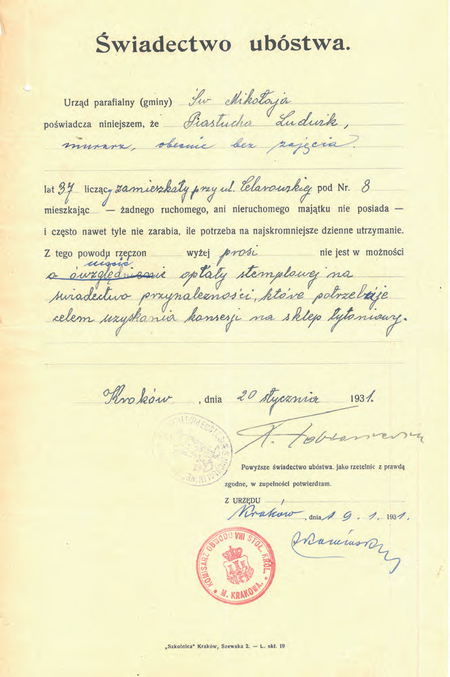 Świadectwo ubóstwa.
Urząd parafialny (gminy) Św Mikołaja
poświadcza niniejszem, że Piastucha Ludwik,
murarz, obecnie bez zajęcia.
lat 37 liczący zamieszkały przy ul. Celarowskiej pod Nr. 8
mieszkając — żadnego ruchomego, ani nieruchomego majątku nie posiada —
i często nawet tyle nie zarabia, ile potrzeba na najskromniejsze dzienne utrzymanie.
Z tego powodu rzeczon wyżej prosi nie jest w możności
o opłaty stemplowej na
świadectwo przynależności, które potrzebuje
celem uzyskania koncesji na sklep tytoniowy.
Kraków, dnia 20 stycznia 1931.
Powyższe świadectwo ubóstwa, jako rzetelnie z prawdą
zgodne, w zupełności potwierdzam.
Z URZĘDU
Kraków, dnia 19.1.1931.
KOMISARZ OBWODU VIII STOŁ. KRÓL.
M. KRAKOWA.
„Szkolnica" Kraków, Szewska 2. — L. skł. 19